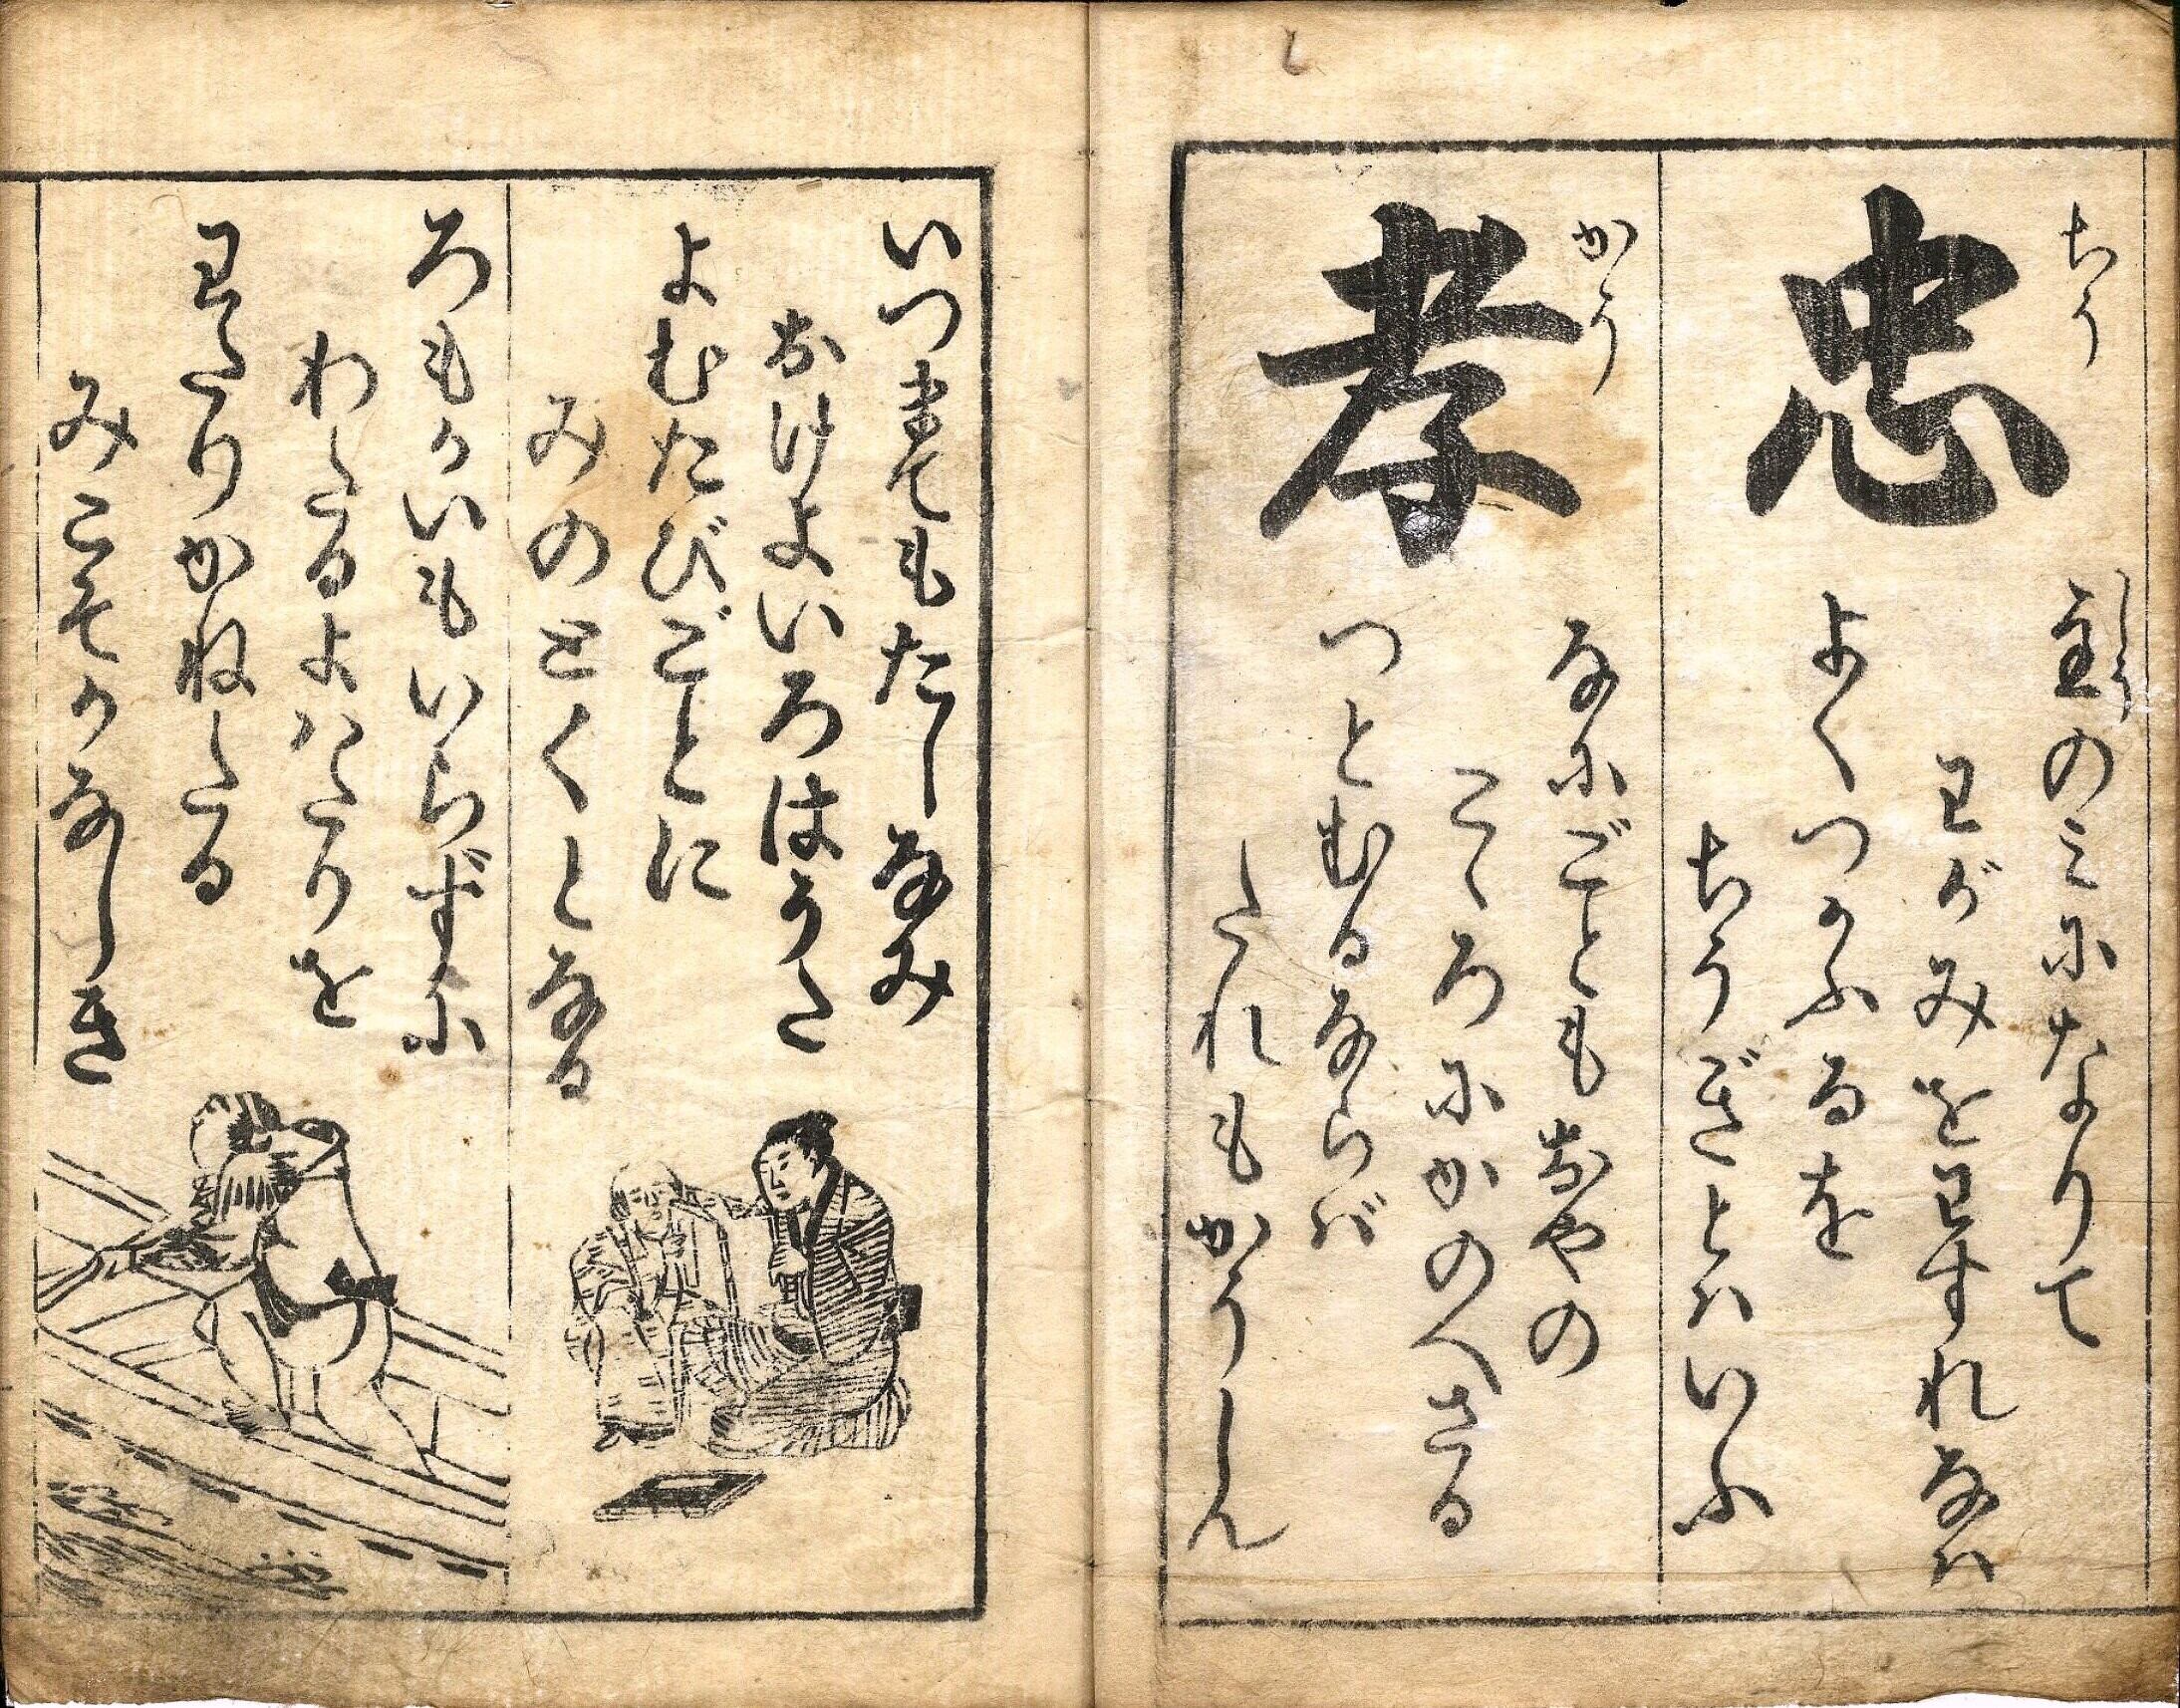 ちう
忠
主のミになりて
しう
わがみをわすれなハ
よくつかふるを
ちうぎとハいふ
かう
孝
なにごともおやの
こゝろにかのへさる
つとむるならバ
たれもかうしん
いつまてもたしなみ
おけよいろはうた
よむたびごとに
みのとくとなる
ろもかいもいらずに
わたるよハたりを
わたりかねたる
みこそかなしき